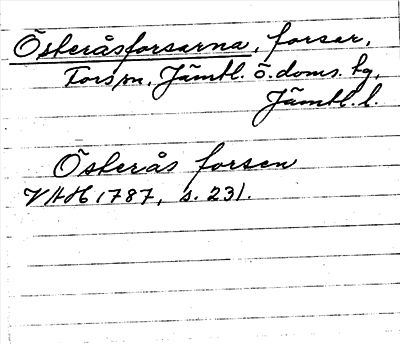 Österåsforsarna, forser,
Fors sn, Jämtl. ö. doms. tg,
Jämtl. l.
Österås forsen
VAH 1787, s. 231.